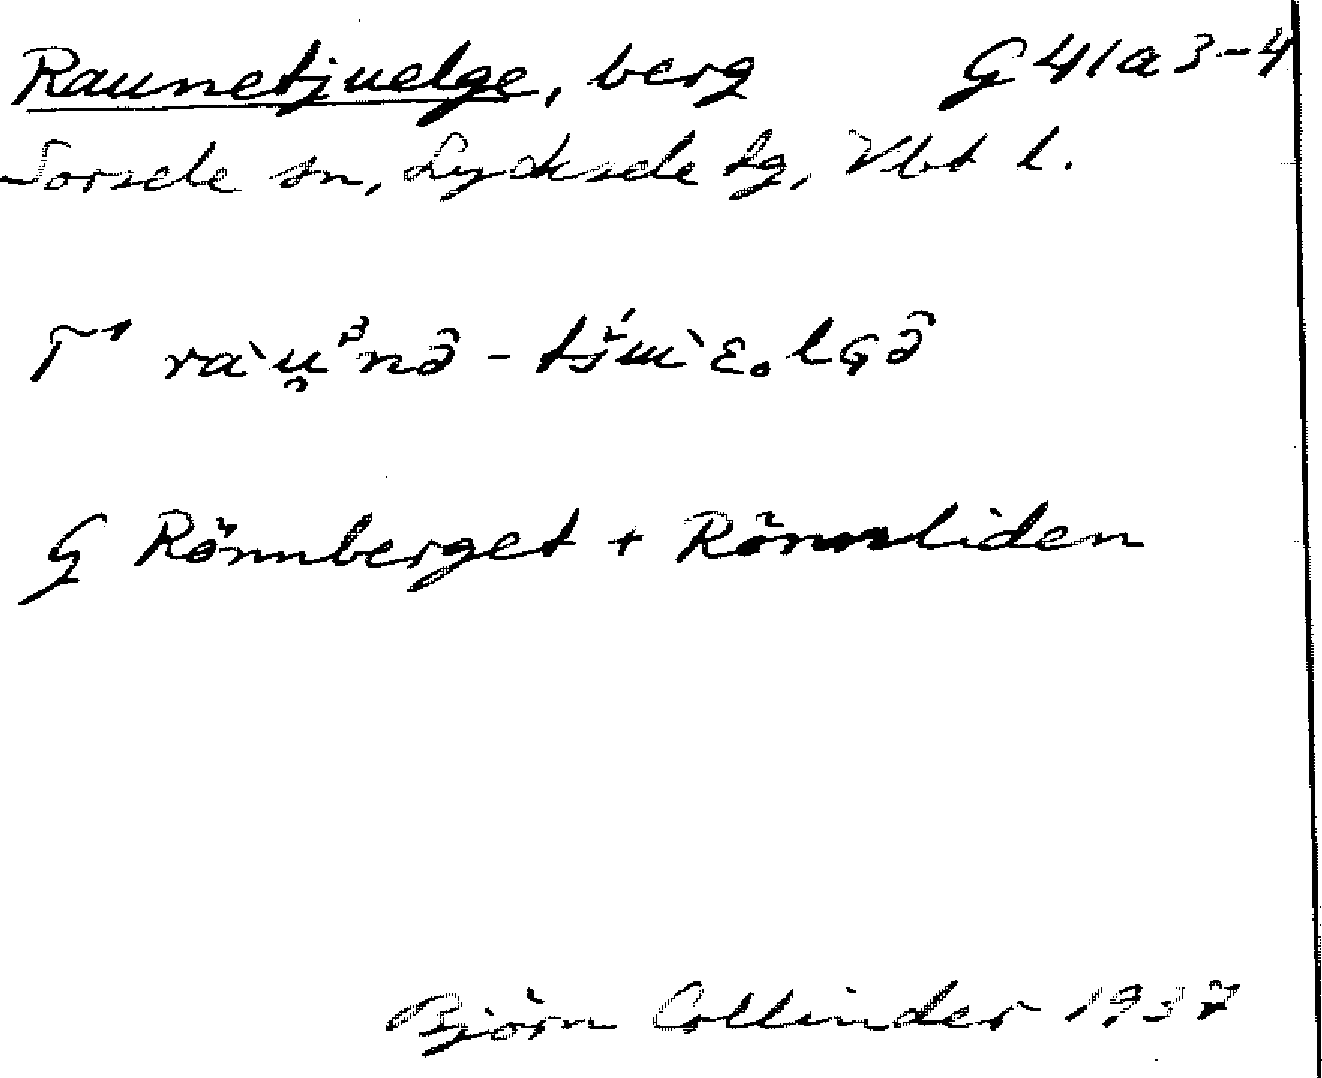 Raunetjuelge, berg G 41a 3-4
Sorsele sn, Lycksele tg, Vbt l.
G Rönnberget + Rönnliden
Björn Collinder 1937